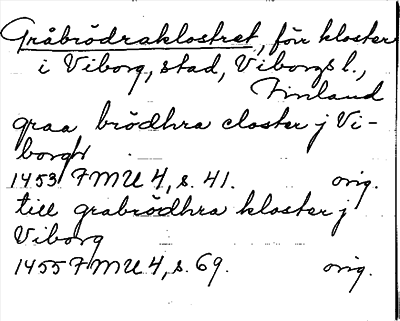 Gråbrödraklostret, för kloster
i Viborg, stad, Viborgs l.,
Finland
graa brödhra closter j Vi-
borgh
1453 FMU 4, s. 41. orig.
till grabrödhra kloster j
Viborg
1455 FMU 4, s. 69. orig.